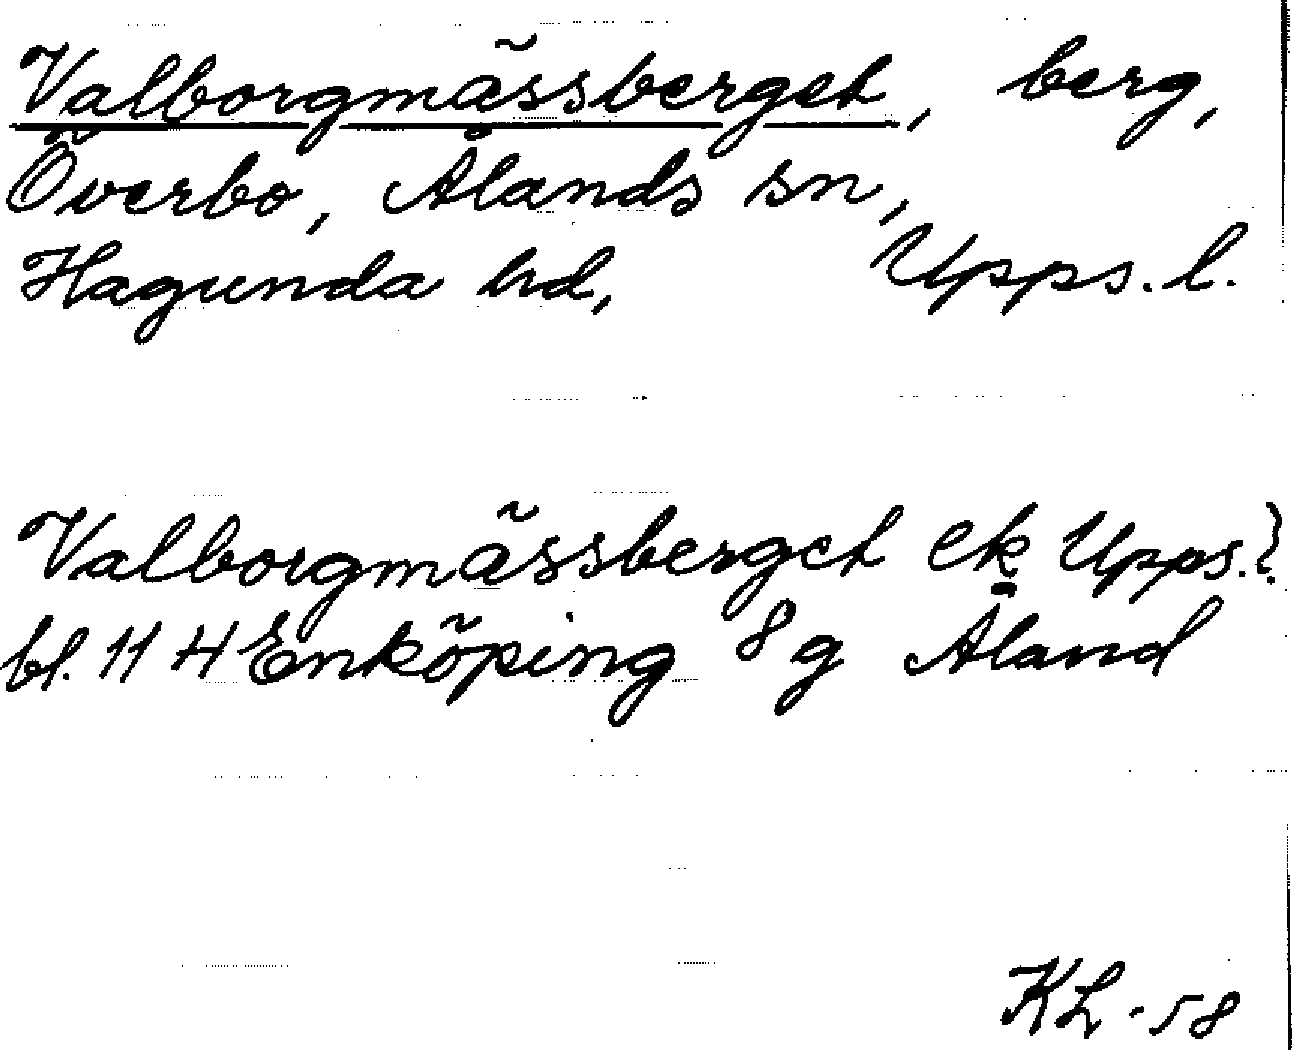 Valborgmässberget, berg,
Överbo, Ålands sn,
Hagunda hd, Upps. l.
Valborgmässberget ek Upps. l.
bl. 114 Enköping 8g Åland
KL -58